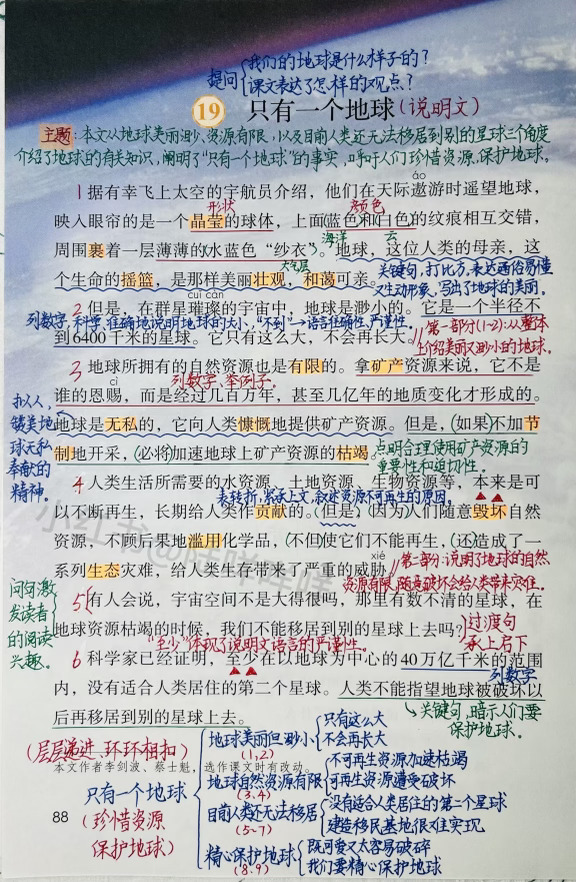 提问
我们的地球是什么样子的？
课文表达了怎样的观点？
19 只有一个地球（说明文）
主题：本文从地球美丽渺小、资源有限，以及目前人类还无法移居到别的星球三个角度
介绍了地球的有关知识，阐明了“只有一个地球”的事实，呼吁人们珍惜资源、保护地球。
áo
1 据有幸飞上太空的宇航员介绍，他们在天际遨游时遥望地球，
形状 颜色
映入眼帘的是一个晶莹的球体，上面蓝色和白色的纹痕相互交错，
海洋 云
周围裹着一层薄薄的水蓝色“纱衣”。地球，这位人类的母亲，这
大气层
个生命的摇篮，是那样美丽壮观，和蔼可亲。
关键句，打比方，表达通俗易懂
又生动形象，写出了地球的美丽。
cuǐ càn
2 但是，在群星璀璨的宇宙中，地球是渺小的。它是一个半径不
列数字，科学、准确地说明地球的大小，“不到”→语言准确性、严谨性。
到6400千米的星球。它只有这么大，不会再长大。
第一部分(1-2)：从整体
上介绍美丽又渺小的地球。
3 地球所拥有的自然资源也是有限的。拿矿产资源来说，它不是
cì
列数字、举例子。
谁的恩赐，而是经过几百万年，甚至几亿年的地质变化才形成的。
地球是无私的，它向人类慷慨地提供矿产资源。但是，（如果）不加节
制地开采，（必将）加速地球上矿产资源的枯竭。
拟人，
赞美地
球无私
奉献的
精神。
点明合理使用矿产资源的
重要性和迫切性。
4 人类生活所需要的水资源、土地资源、生物资源等，本来是可
表转折，紧承上文，叙述资源不可再生的原因。
以不断再生，长期给人类作贡献的。（但是）（因为）人们随意毁坏自然
资源，不顾后果地滥用化学品，（不但）使它们不能再生，（还）造成了一
xié
系列生态灾难，给人类生存带来了严重的威胁。
第二部分：说明了地球的自然
资源有限，随意破坏会给人类带来灾难。
5 有人会说，宇宙空间不是大得很吗，那里有数不清的星球，在
地球资源枯竭的时候，我们不能移居到别的星球上去吗？
问句激
发读者
的阅读
兴趣。
过渡句
承上启下
“至少”体现了说明文语言的严谨性。
6 科学家已经证明，至少在以地球为中心的40万亿千米的范围
列数字
内，没有适合人类居住的第二个星球。人类不能指望地球被破坏以
后再移居到别的星球上去。
关键句，暗示人们要
保护地球。
（层层递进、环环相扣）
本文作者李剑波、蔡士魁，选作课文时有改动。
88
只有一个地球
（珍惜资源
保护地球）
地球美丽但渺小
(1,2)
只有这么大
不会再长大
地球自然资源有限
(3,4)
不可再生资源加速枯竭
可再生资源遭受破坏
目前人类还无法移居
(5-7)
没有适合人类居住的第二个星球
建造移民基地很难实现
精心保护地球
(8.9)
既可爱又太容易破碎
我们要精心保护地球